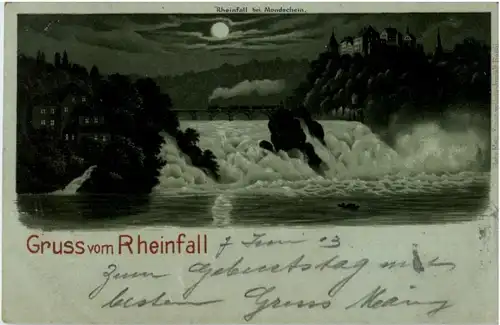 Rheinfall bei Mondschein.
Gruss vom Rheinfall
7 Juni 03
Zum Geburtstag mit
besten Gruss